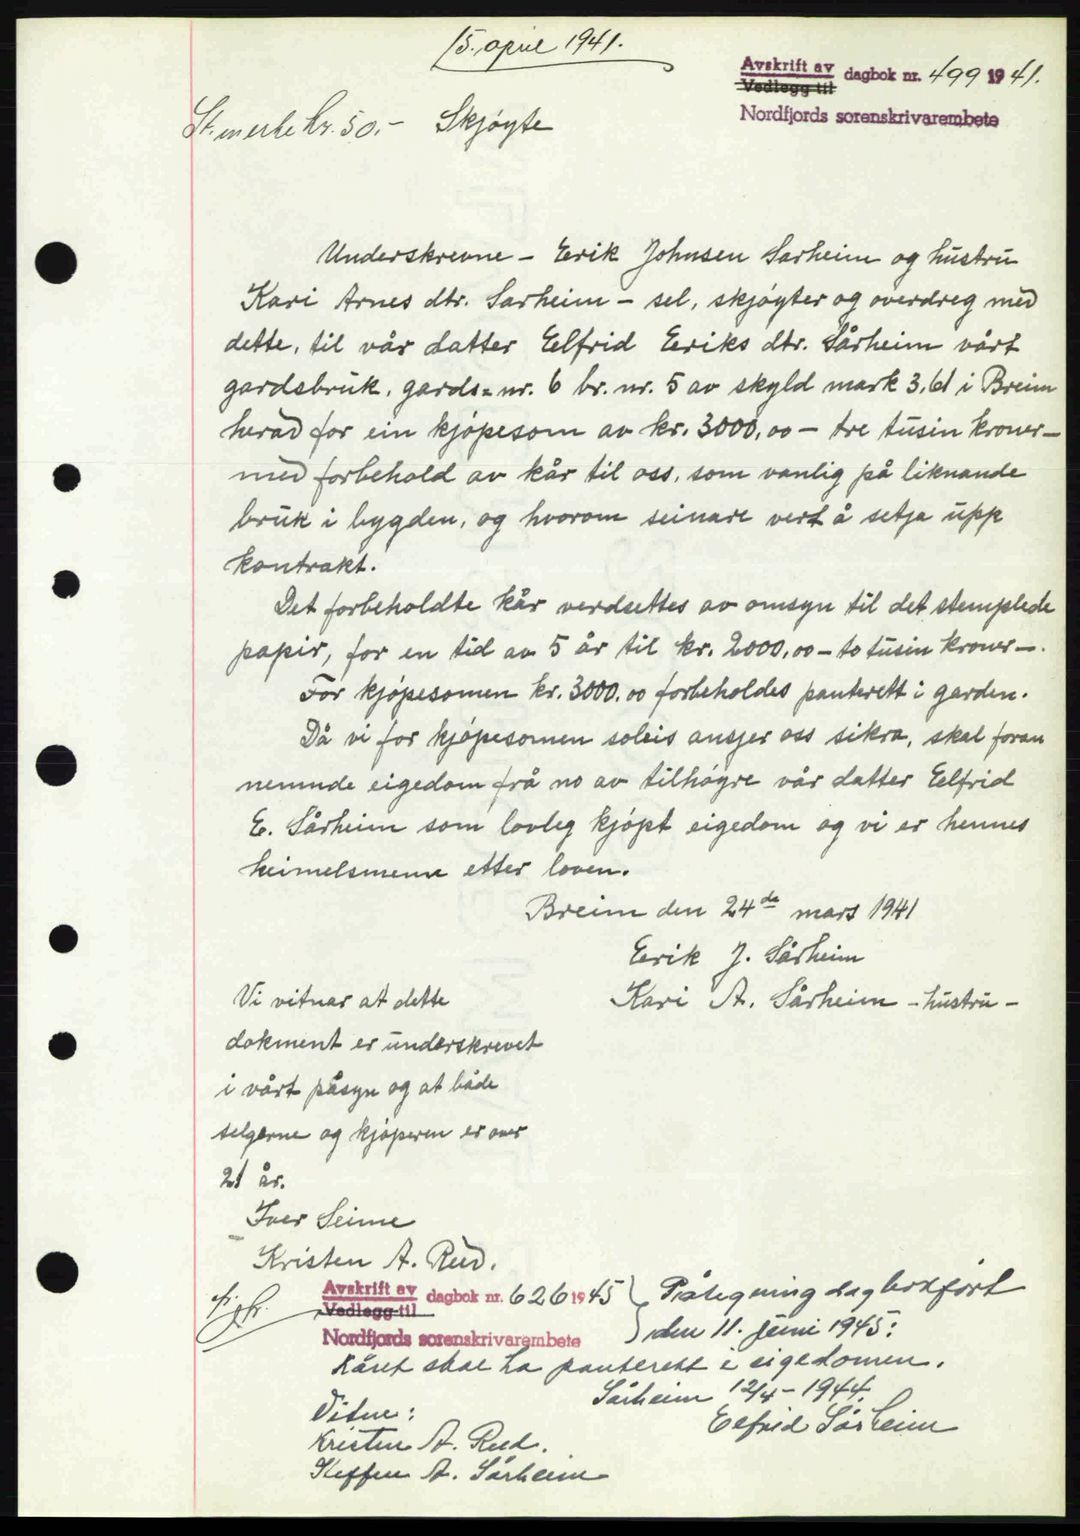 15. april 1941.
Avskrift av
Vedlegg til dagbok nr. 499 1941.
Nordfjords sorenskrivarembete
St.merke kr. 50.- Skjøyte
Underskrevne - Erik Johnsen Sarheim og hustru
Kari Arnes dtr. Sarheim - sel, skjøyter og overdreg med
dette, til vår datter Elfrid Eeriks dtr. Sårheim vårt
gardsbruk, gards=nr. 6 br. nr. 5 av skyld mark 3,61 i Breim
herad for ein kjøpesom av kr. 3000,00 - tre tusin kroner -
med forbehold av kår til oss, som vanlig på liknande
bruk i bygden, og hvorom seinare vert å setja upp
kontrakt.
Det forbeholdte kår verdsettes av omsyn til det stemplede
papir, for en tid av 5 år til kr. 2000,00 - to tusin kroner -.
For kjøpesomen kr. 3000.00 forbeholdes panterett i garden.
Då vi for kjøpesomen soleis ansjer oss sikra, skal foran
nemnde eigedom frå no av tilhøyre vår datter Eelfrid
E. Sårheim som lovleg kjøpt eigedom og vi er hennes
heimelsmenn etter loven.
Breim den 24de mars 1941
Eerik J. Sårheim
Kari A. Sårheim - hustru -
Vi vitnar at dette
dokment er underskrevet
i vårt påsyn og at både
selgerne og kjøperen er over
21 år.
Iver Seime
Kristen A. Rud.
Avskrift av
Vedlegg til dagbok nr. 626 1945
Nordfjords sorenskrivarembete
Påtegning dagbokført
den 11. juni 1945:
Kåret skal ha panterett i eigedomen.
Sårheim 12/4 - 1944.
Eelfrid Sårheim
Vitne:
Kristen A. Rud.
Steffen A. Sårheim